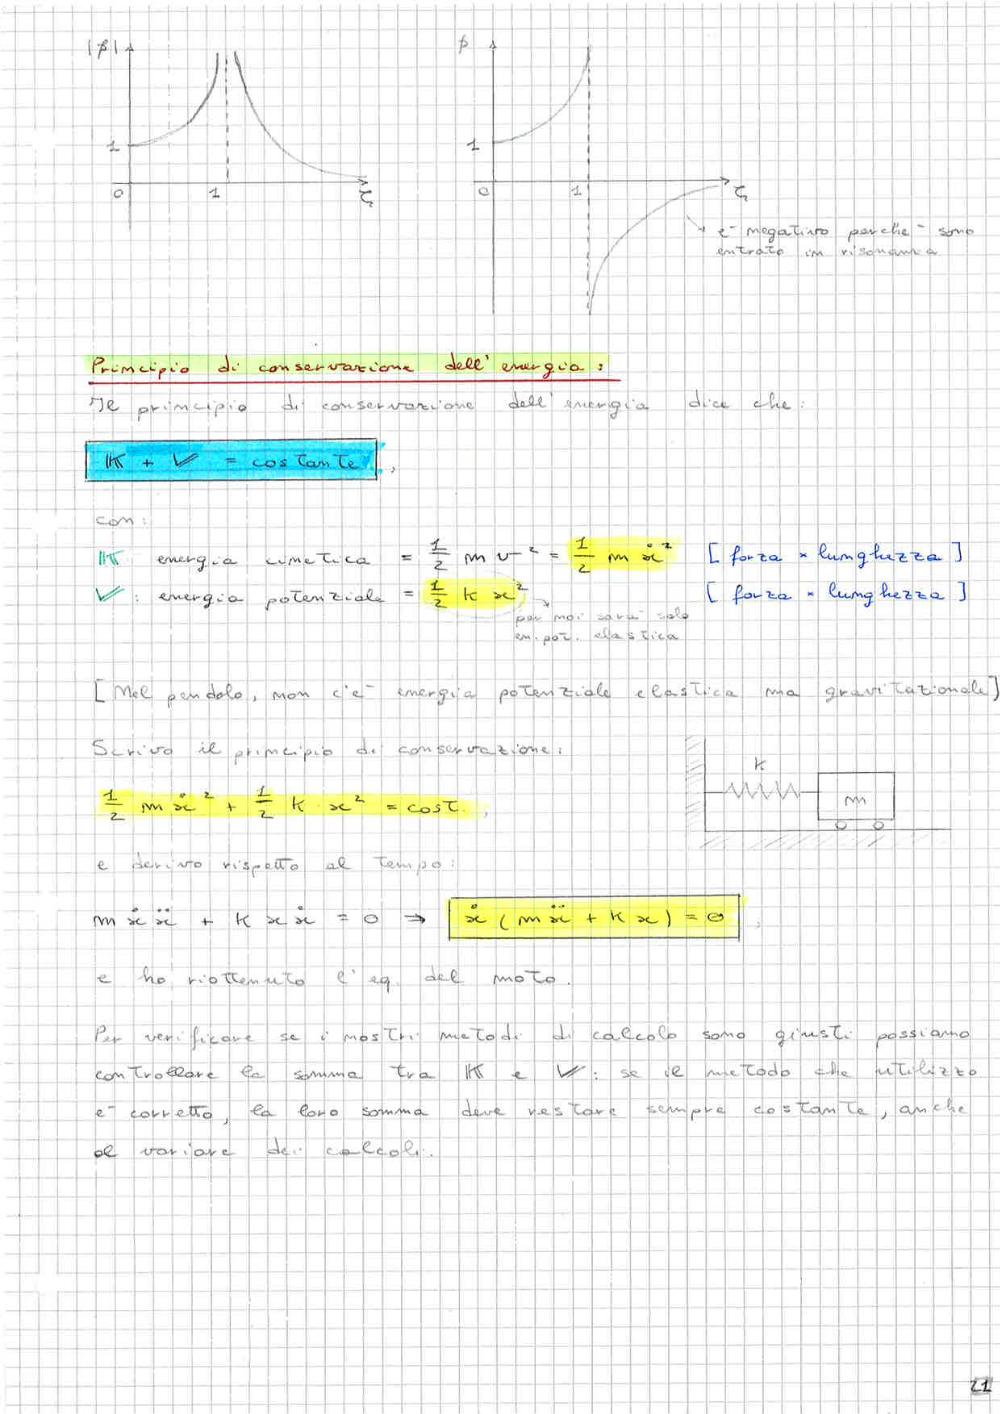 |β|
1
0
1
ζ
β
1
0
1
ζ
è negativo perchè sono
entrato in risonanza
Principio di conservazione dell'energia:
Il principio di conservazione dell'energia dice che:
𝕂 + 𝕍 = costante,
con:
𝕂 energia cinetica = 1/2 m v² = 1/2 m ẋ² [forza × lunghezza]
𝕍: energia potenziale = 1/2 k x² [forza × lunghezza]
per noi sarà solo
en. pot. elastica
[Nel pendolo, non c'è energia potenziale elastica ma gravitazionale]
Scrivo il principio di conservazione:
1/2 m ẋ² + 1/2 k · x² = cost.,
k
m
e derivo rispetto al tempo:
m ẋ ẍ + k x ẋ = 0 → ẋ (m ẍ + k x) = 0,
e ho riottenuto l'eq. del moto.
Per verificare se i nostri metodi di calcolo sono giusti possiamo
controllare la somma tra 𝕂 e 𝕍: se il metodo che utilizzo
è corretto, la loro somma deve restare sempre costante, anche
al variare dei calcoli.
21